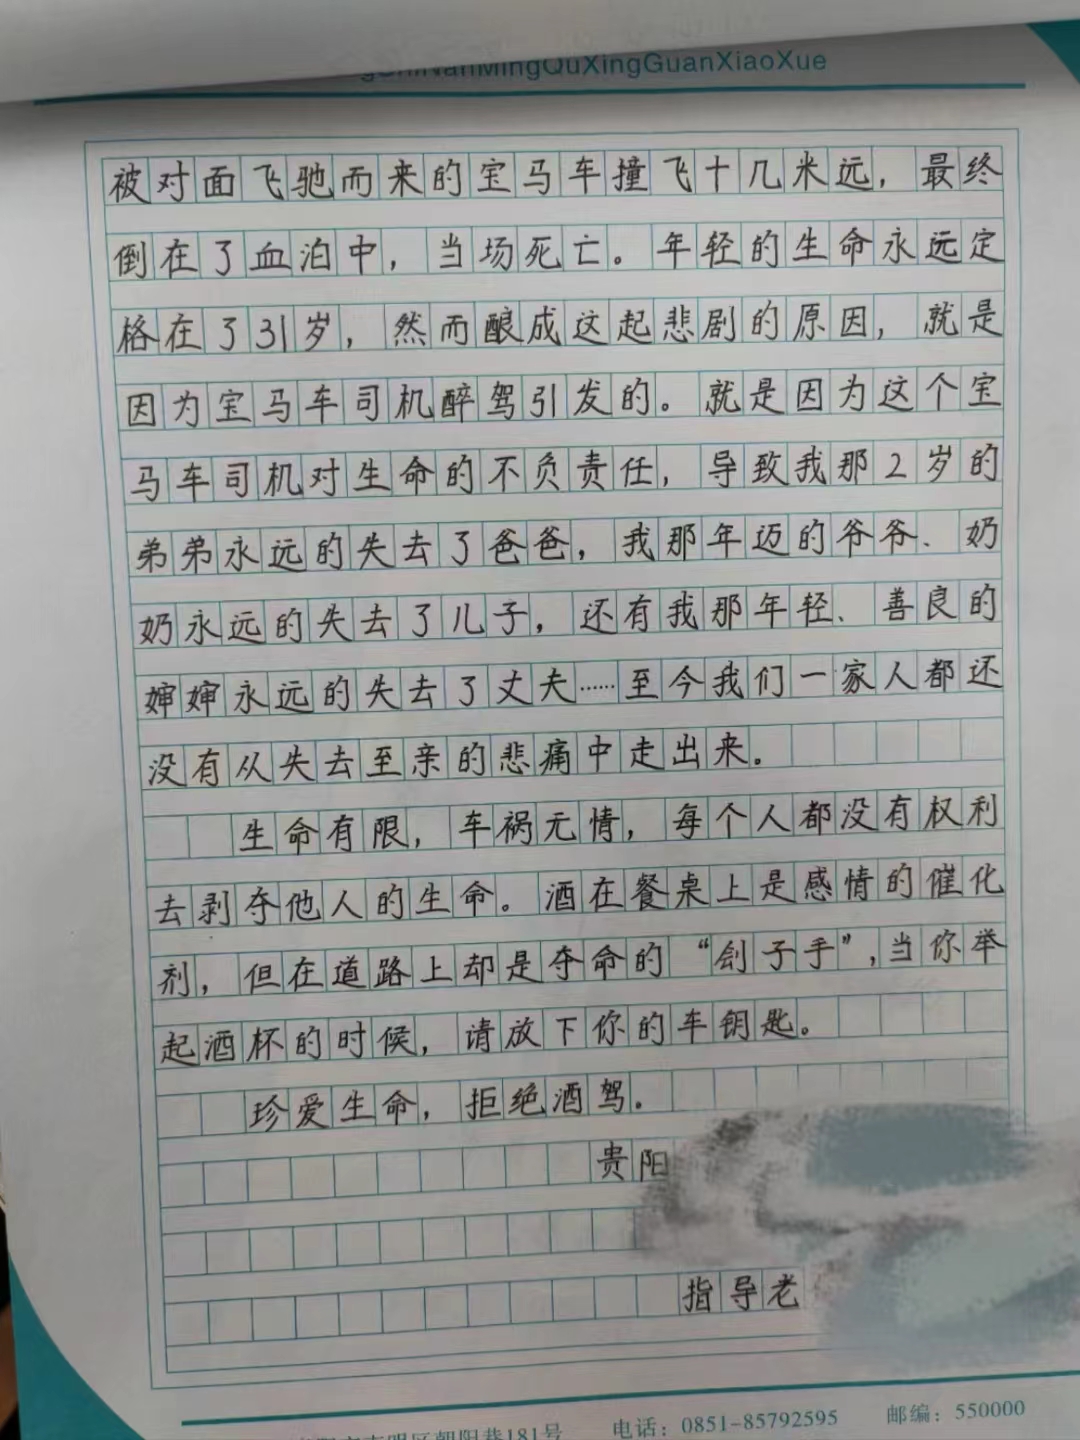 gShiNanMingQuXingGuanXiaoXue
被对面飞驰而来的宝马车撞飞十几米远，最终
倒在了血泊中，当场死亡。年轻的生命永远定
格在了31岁，然而酿成这起悲剧的原因，就是
因为宝马车司机醉驾引发的。就是因为这个宝
马车司机对生命的不负责任，导致我那2岁的
弟弟永远的失去了爸爸，我那年迈的爷爷、奶
奶永远的失去了儿子，还有我那年轻、善良的
婶婶永远的失去了丈夫……至今我们一家人都还
没有从失去至亲的悲痛中走出来。
生命有限，车祸无情，每个人都没有权利
去剥夺他人的生命。酒在餐桌上是感情的催化
剂，但在道路上却是夺命的“刽子手”，当你举
起酒杯的时候，请放下你的车钥匙。
珍爱生命，拒绝酒驾.
贵阳
指导老
明区朝阳巷181号 电话：0851-85792595 邮编：550000